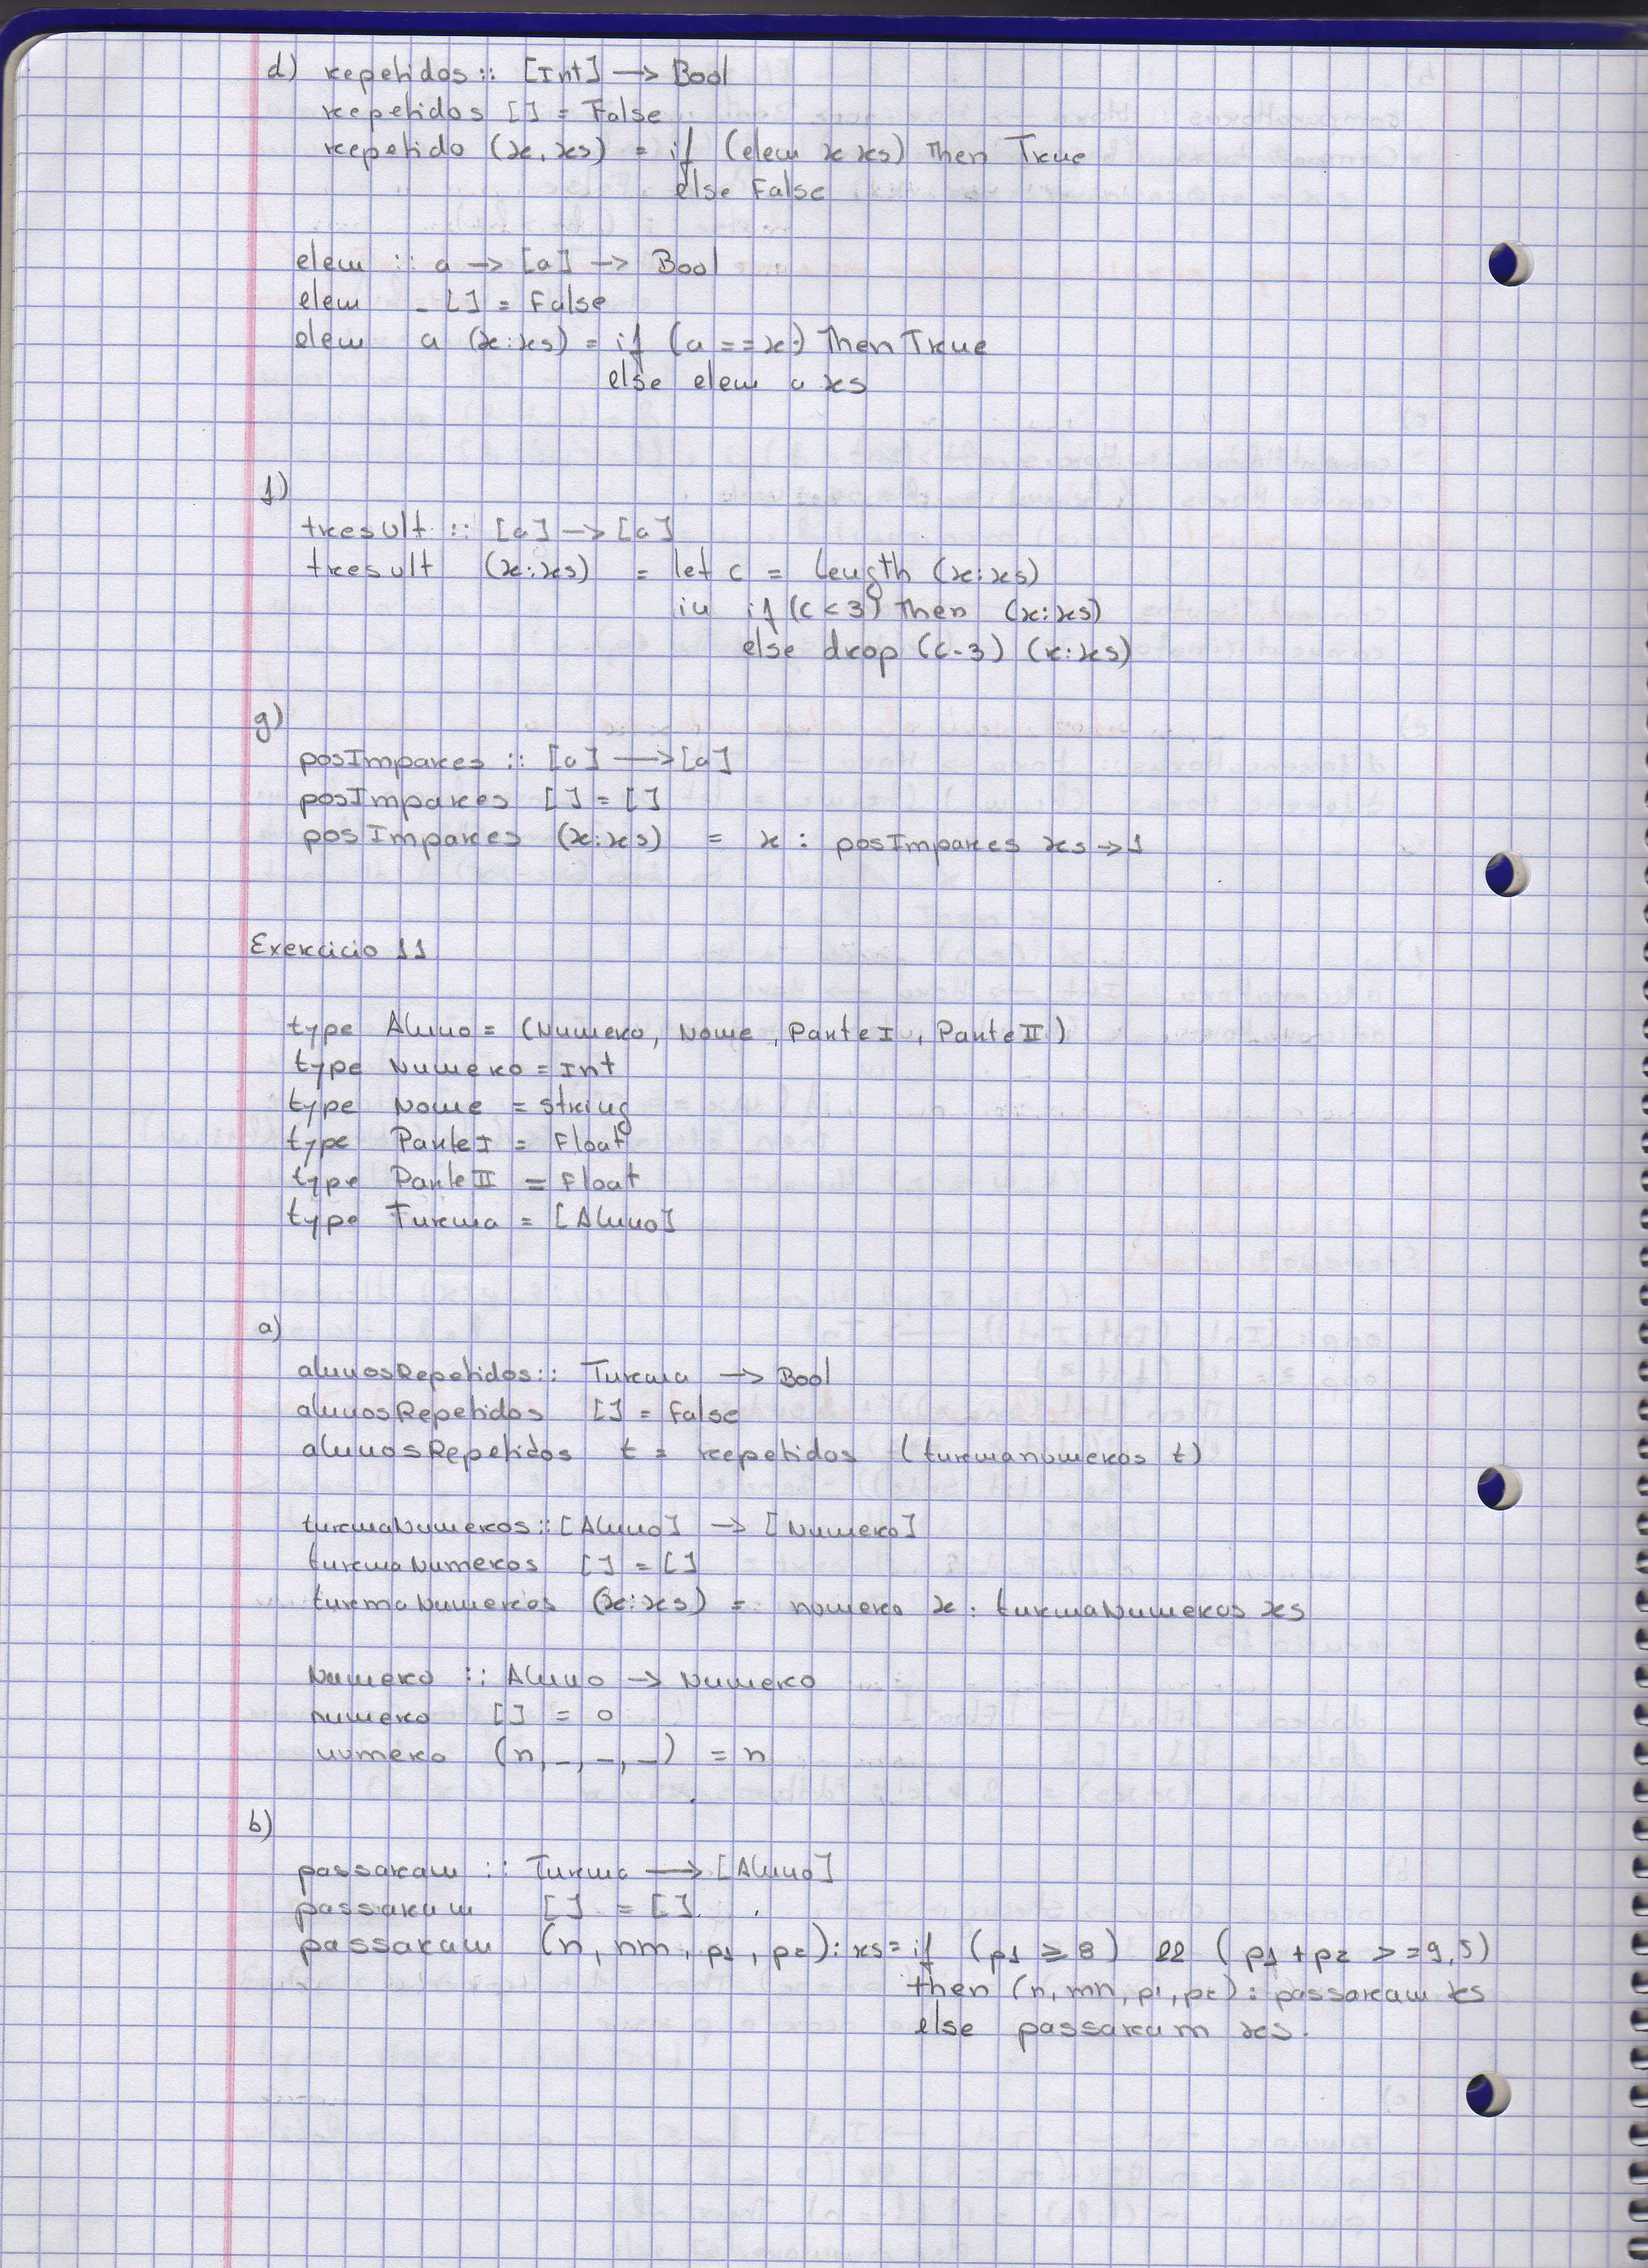 d) repetidos :: [Int] -> Bool
repetidos [] = False
repetido (x, xs) = if (elem x xs) then True
else False
elem :: a -> [a] -> Bool
elem _ [] = False
elem a (x:xs) = if (a == x) then True
else elem a xs
f)
tresult :: [a] -> [a]
tresult (x:xs) = let c = length (x:xs)
in if (c < 3) then (x:xs)
else drop (c-3) (x:xs)
g)
posImpares :: [a] -> [a]
posImpares [] = []
posImpares (x:xs) = x : posImpares xs -> 1
Exercicio 11
type Aluno = (Numero, Nome, ParteI, ParteII)
type Numero = Int
type Nome = String
type ParteI = Float
type ParteII = Float
type Turma = [Aluno]
a)
alunosRepetidos :: Turma -> Bool
alunosRepetidos [] = False
alunosRepetidos t = repetidos (turmanumeros t)
turmaNumeros :: [Aluno] -> [Numero]
turmaNumeros [] = []
turmaNumeros (x:xs) = numero x : turmaNumeros xs
Numero :: Aluno -> Numero
numero [] = 0
numero (n, _, _, _) = n
b)
passaram :: Turma -> [Aluno]
passaram [] = []
passaram (n, nm, p1, p2) : xs = if (p1 ≥ 8) && (p1 + p2 >= 9,5)
then (n, mn, p1, p2) : passaram xs
else passaram xs.